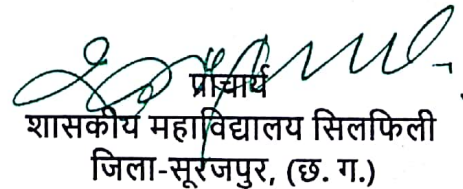 प्राचार्य
शासकीय महाविद्यालय सिलफिली
जिला-सूरजपुर, (छ. ग.)